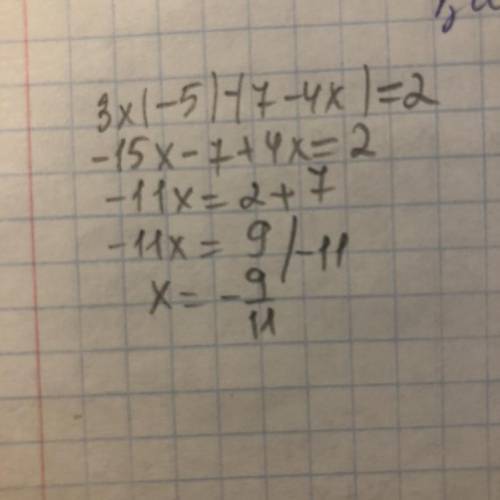 3x(-5)-(7-4x)=2
-15x-7+4x=2
-11x=2+7
-11x=9/-11
x=-9/11